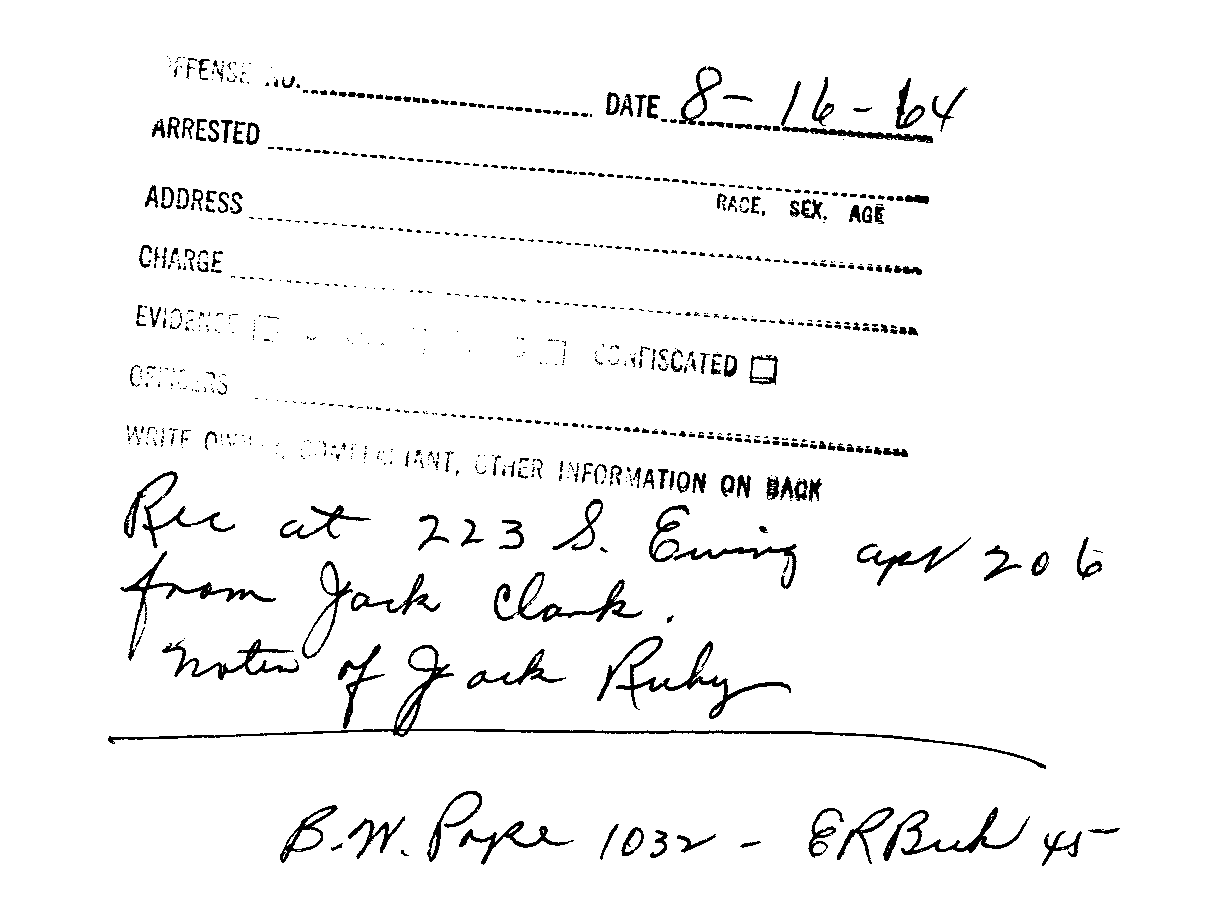 OFFENSE NO. DATE 8-16-64
ARRESTED
RACE, SEX, AGE
ADDRESS
CHARGE
EVIDENCE CONFISCATED
OFFICERS
WRITE OWNER, COMPLAINANT, OTHER INFORMATION ON BACK
Rec at 223 S. Ewing apt 206
from Jack Clark.
of Jack Ruby
B.W. 1032 - ER 45